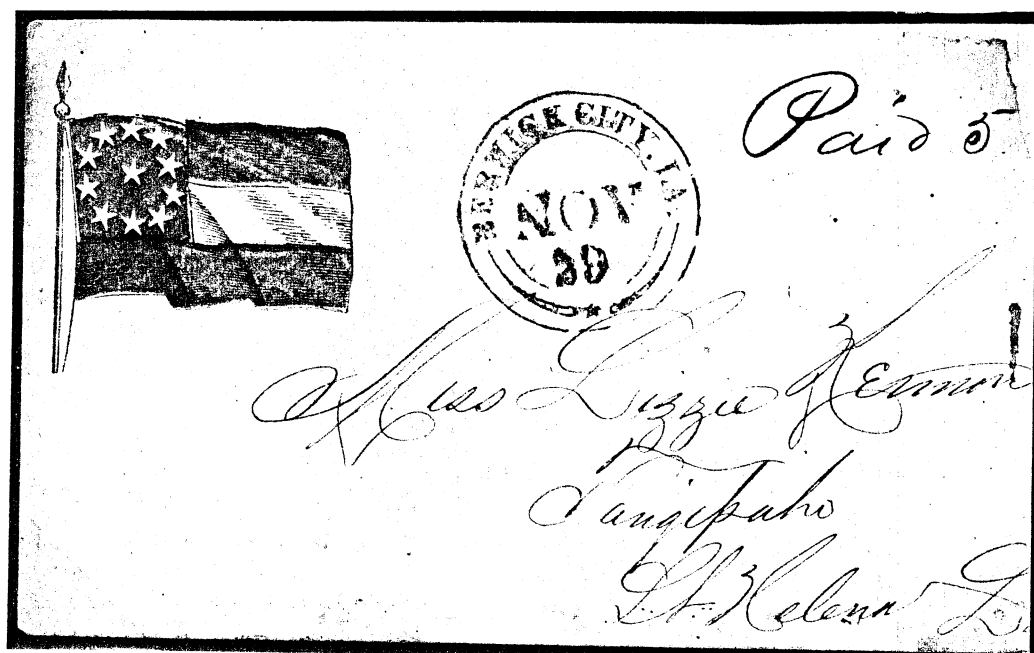 Paid 5
BERWICK CITY, LA.
NOV
29
Miss Lizzie Kennon
Tangipaho
St. Helena L.